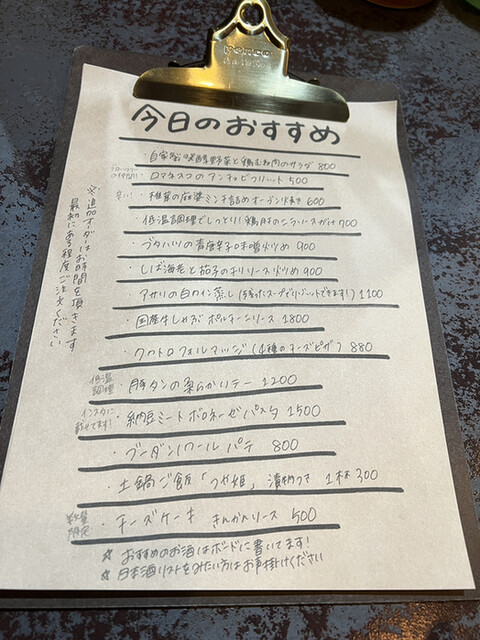 penco
今日のおすすめ
・自家製発酵野菜と鶏むね肉のサラダ 800
・ロマネスコのアンチョビフリット 500
辛い! ・椎茸の麻婆ミンチ詰めオーブン焼き 600
・低温調理でしっとり!鶏肝の 700
・ブタハツの青唐辛子味噌炒め 900
・しば海老と茄子のチリソース炒め 900
・アサリの白ワイン蒸し(残ったスープでリゾットできます!) 1100
・国産牛しゃぶ ポルチーニソース 1800
・クワトロフォルマッジ(4種のチーズピザ) 880
低温調理 ・豚タンの柔らかソテー 1200
インスタに載せてます! ・納豆ミートボロネーゼパスタ 1500
・ブーダンノワール パテ 800
・土鍋ご飯「つや姫」漬物つき 1杯300
数量限定 ・チーズケーキ きんかんソース 500
☆ おすすめのお酒はボードに書いてます!
☆ 日本酒リストをみたい方はお声掛けください
※追加オーダーはお時間を頂きます
最初にある程度ご注文ください